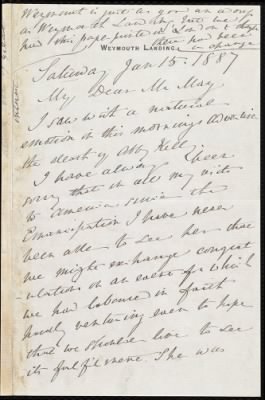 Weymouth is just as you are a song
as Weymouth Landing. Just we
had this paper printed in London &
there has been
a change
WEYMOUTH LANDING,
Saturday Jan 15. 1887
My Dear Mr May
I saw with a natural
emotion of this mornings Advertiser
the death of Abby Kelly.
I have always been
sorry that in all my visits
to America since the
Emancipation I have never
been able to see her that
we might exchange congrat
ulations on an event for which
we had laboured in faith
hardly venturing even to hope
that we should live to see
its fulfilment. She was